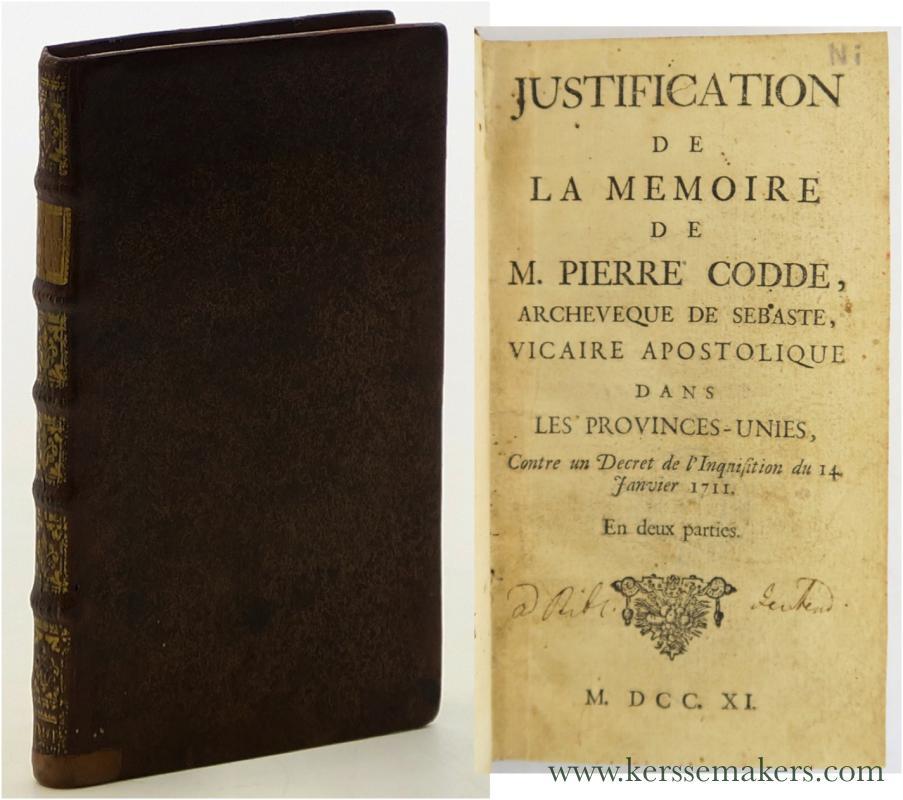 Ni
JUSTIFICATION
DE
LA MEMOIRE
DE
M. PIERRE CODDE,
ARCHEVEQUE DE SEBASTE,
VICAIRE APOSTOLIQUE
DANS
LES PROVINCES-UNIES,
Contre un Decret de l'Inquiſition du 14.
Janvier 1711.
En deux parties.
M. DCC. XI.
www.kerssemakers.com